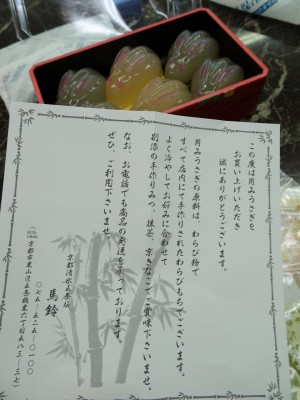 この度は月みうさぎを
お買い上げいただき
誠にありがとうございます。
月みうさぎの原料は、わらび粉で
すべて店内にて手作りされたわらびもちでございます。
よく冷やしてお好みに合わせて
別添の手作りみつ、抹茶、京きなこでご賞味下さいませ。
なお、お電話でも商品の発送を承っております。
ぜひ、ご利用下さいませ。
京都清水五条坂
馬鈴
京都市東山区五条橋東六丁目五八三-三七